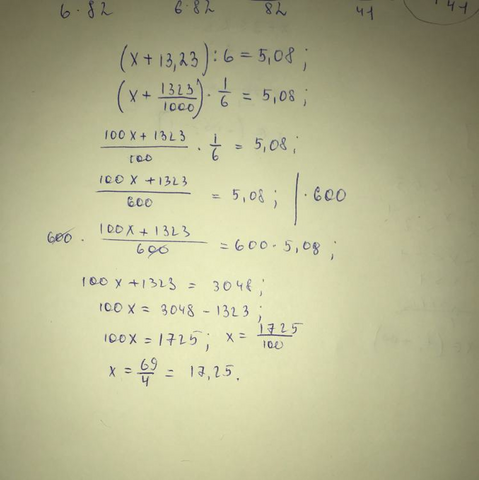 6·82 6·82 82 41 41
(x + 13,23) : 6 = 5,08;
(x + 1323/1000) · 1/6 = 5,08;
100x + 1323/100 · 1/6 = 5,08;
100x + 1323/600 = 5,08; | · 600
600 · 100x + 1323/600 = 600 · 5,08;
100x + 1323 = 3048;
100x = 3048 - 1323;
100x = 1725; x = 1725/100
x = 69/4 = 17,25.